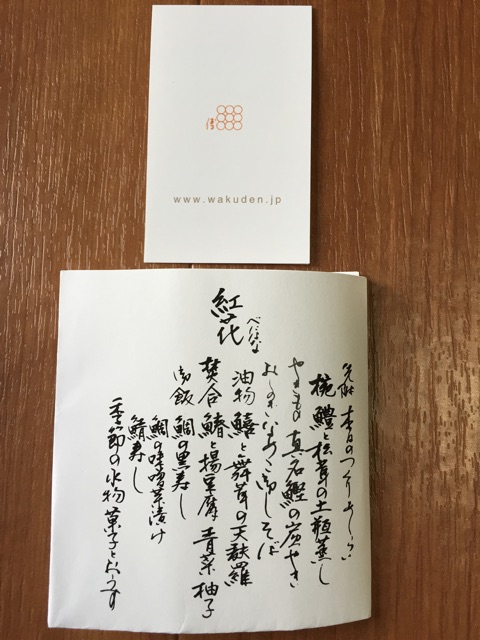 www.wakuden.jp
紅花
べにばな
先附 本日の
椀 鱧と松茸の土瓶蒸し
やきもの 真名鰹の炭やき
おしのぎ いちじく おろしそば
油物 鱚と舞茸の天麩羅
焚合 鰆と揚豆腐 青菜 柚子
御飯 鯛の黒寿し
鯛の味噌茶漬け
鯖寿し
季節の水物 菓子とおうす